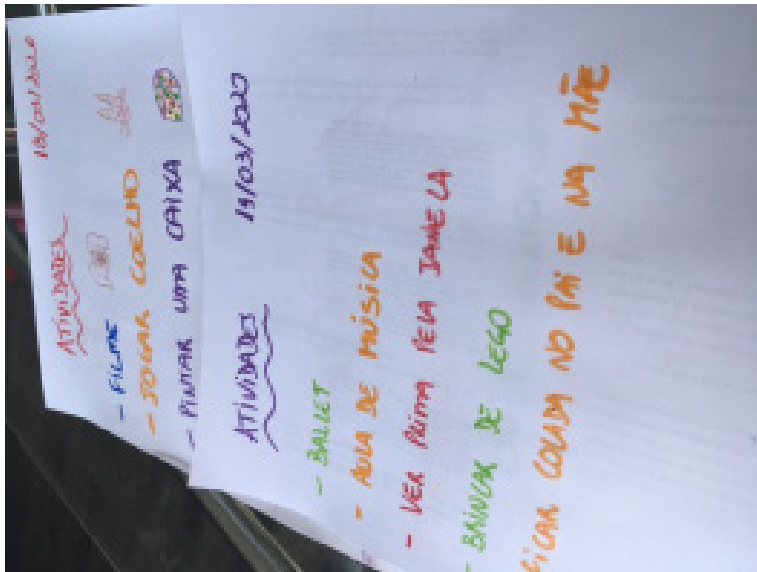 ATIVIDADES 18/03/2020
- FILME
- JOGAR COELHO
- PINTAR UMA CAIXA
ATIVIDADES 19/03/2020
- BALLET
- AULA DE MÚSICA
- VER PRIMA PELA JANELA
- BRINCAR DE LEGO
FICAR COLADA NO PAI E NA MÃE